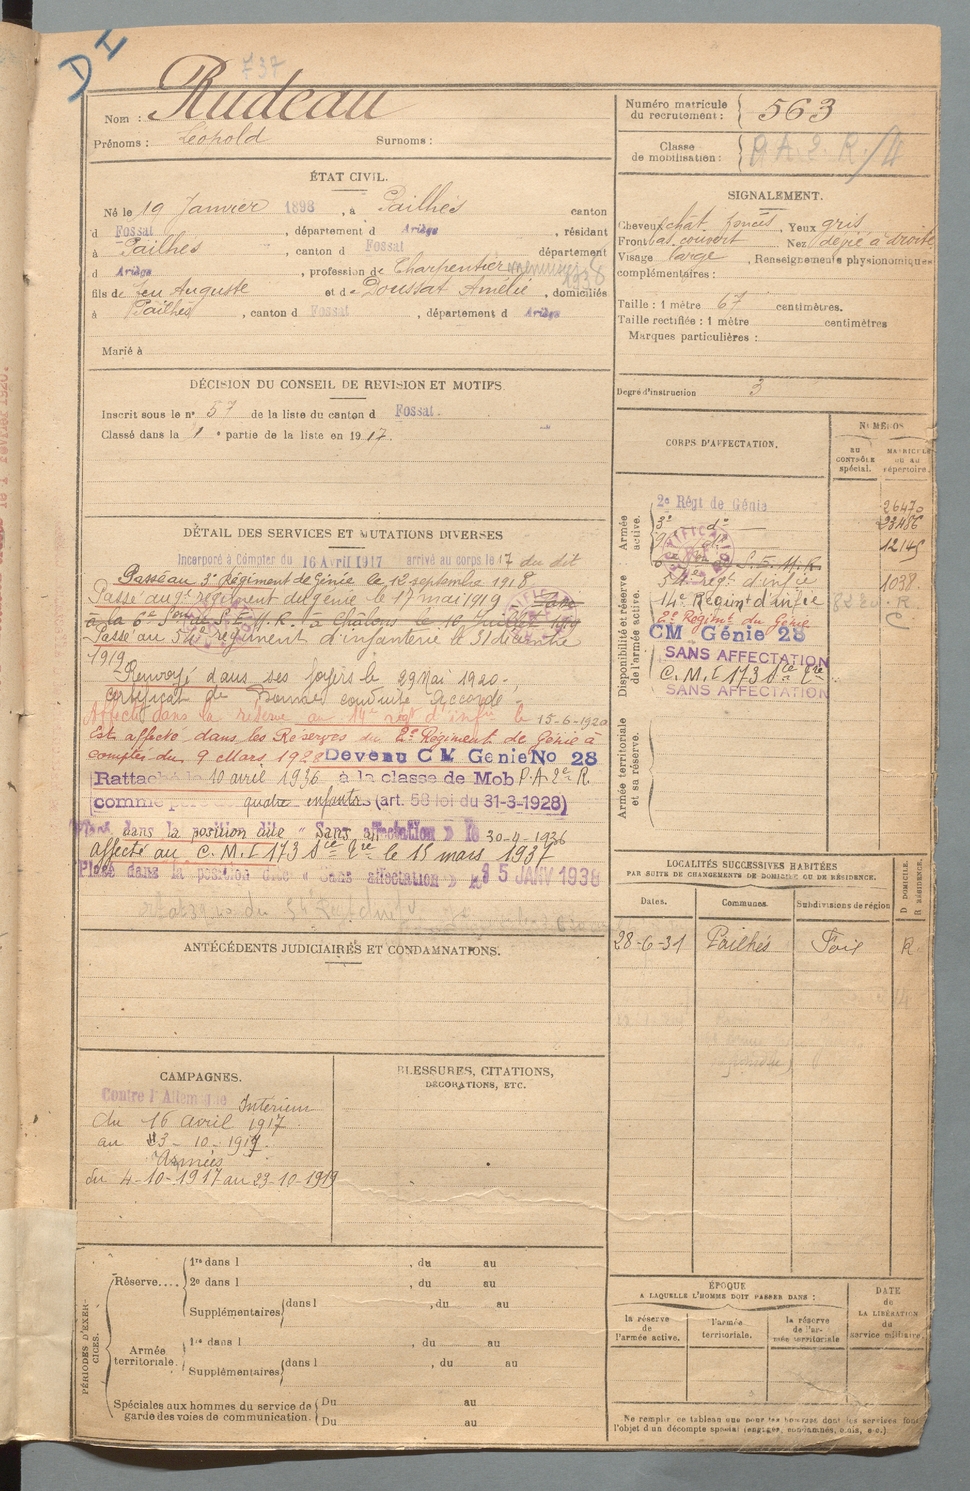 D I
737
Nom : Rudeau
Prénoms : Léopold Surnoms :
Numéro matricule du recrutement : 563
Classe de mobilisation : P.A. 2 R./4
ÉTAT CIVIL.
Né le 19 Janvier 1898, à Pailhès canton
d Fossat, département d Ariège, résidant
à Pailhès, canton d Fossat département
d Ariège, profession de Charpentier menuisier 1938
fils de feu Auguste et de Doussat Amélie, domiciliés
à Pailhès, canton d Fossat, département d Ariège
Marié à
SIGNALEMENT.
Cheveux chât. foncés, Yeux gris
Front bas couvert Nez dévié à droite
Visage large, Renseignements physionomiques
complémentaires :
Taille : 1 mètre 67 centimètres.
Taille rectifiée : 1 mètre centimètres
Marques particulières :
Degré d'instruction 3
DÉCISION DU CONSEIL DE REVISION ET MOTIFS
Inscrit sous le nº 57 de la liste du canton d Fossat.
Classé dans la 1 e partie de la liste en 1917.
DÉTAIL DES SERVICES ET MUTATIONS DIVERSES
Incorporé à compter du 16 Avril 1917 arrivé au corps le 17 du dit
Passé au 3e Régiment de Génie le 12 septembre 1918
Passé au 9e régiment du génie le 17 mai 1919
à la 6e à Châlons le 10 Juillet 1919
Passé au 54e régiment d'infanterie le 31 décembre
1919
Renvoyé dans ses foyers le 29 Mai 1920.
certificat de Bonne conduite Accordé
Affecté dans la réserve au 14e régt d'infie le 15-6-1920
Est affecté dans les Réserves du 2e Régiment de Génie à
compter du 9 Mars 1928 Devenu C M Génie No 28
Rattaché le 10 avril 1936 à la classe de Mob P.A. 2e R.
comme père de quatre enfants (art. 58 loi du 31-3-1928)
Placé dans la position dite « Sans affectation » le 30-4-1936
affecté au C.M.I 173 le 15 mars 1937
Placé dans la position dite « Sans affectation » le 15 JANV 1938
CORPS D'AFFECTATION.
NUMÉROS
AU CONTRÔLE spécial.
MATRICULE OU AU répertoire.
Armée active.
2e Régt de Génie 26470
3e do 23486
9e do 12145
S.E.M.R.
Disponibilité et réserve de l'armée active.
54e régt d'infie 1038
14e Régimt d'infie
2e Régimt du Génie
CM Génie 28
SANS AFFECTATION
C.M.I 173
SANS AFFECTATION
Armée territoriale et sa réserve.
LOCALITÉS SUCCESSIVES HABITÉES
PAR SUITE DE CHANGEMENTS DE DOMICILE OU DE RÉSIDENCE.
Dates. Communes. Subdivisions de région D DOMICILE. R RÉSIDENCE.
28-6-31 Pailhès Foix R
ANTÉCÉDENTS JUDICIAIRES ET CONDAMNATIONS.
CAMPAGNES.
Contre l'Allemagne Intérieur
du 16 avril 1917
au 3-10-1917.
Armées
du 4-10-1917 au 23-10-1919
BLESSURES, CITATIONS,
DÉCORATIONS, ETC.
PÉRIODES D'EXERCICES.
Réserve.... 1re dans l , du au
2e dans l , du au
Supplémentaires dans l , du au
Armée territoriale. 1re dans l , du au
Supplémentaires dans l , du au
Spéciales aux hommes du service de garde des voies de communication. Du au
Du au
ÉPOQUE
A LAQUELLE L'HOMME DOIT PASSER DANS :
la réserve de l'armée active. l'armée territoriale. la réserve de l'armée territoriale
DATE DE LA LIBÉRATION du service militaire.
Ne remplir ce tableau que pour les hommes dont les services font
l'objet d'un décompte spécial (engagés, condamnés, omis, etc.)